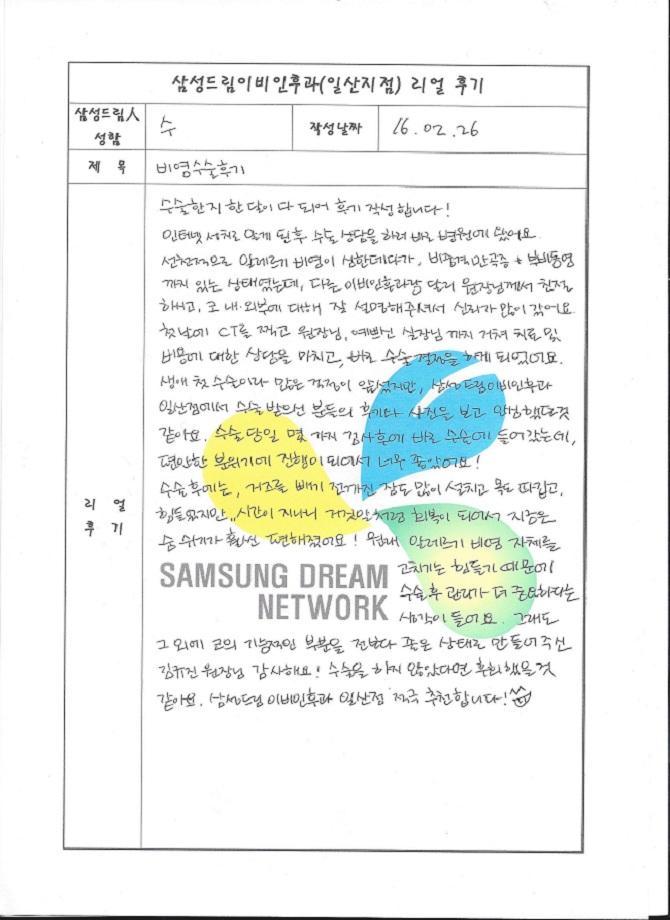 삼성드림이비인후과(일산지점) 리얼 후기
삼성드림人 성함
수
작성날짜
16.02.26
제 목
비염수술후기
리 얼 후 기
수술한지 한달이 다 되어 후기 작성합니다!
인터넷 서치로 알게 된 후 수술 상담을 하러 바로 병원에 왔어요.
선천적으로 알레르기 비염이 심한데다가, 비중격만곡증 + 부비동염
까지 있는 상태였는데, 다른 이비인후과랑 달리 원장님께서 친절
하시고, 코 내·외부에 대해 잘 설명해주셔서 신뢰가 많이 갔어요
첫날에 CT를 찍고 원장님, 예쁘신 실장님 까지 거쳐 치료 및
비용에 대한 상담을 마치고, 바로 수술 결정을 하게 되었어요.
생애 첫 수술이라 많은 걱정이 앞섰지만, 삼성드림이비인후과
일산점에서 수술 받으신 분들의 후기나 사진을 보고 안심했던것
같아요. 수술 당일 몇 가지 검사후에 바로 수술에 들어갔는데,
편안한 분위기에 진행이 되어서 너무 좋았어요!
수술 후에는, 거즈를 빼기 전까진 잠도 많이 설치고 목도 따갑고,
힘들었지만, 시간이 지나니 거짓말처럼 회복이 되어서 지금은
숨 쉬기가 훨씬 편해졌어요! 원래 알레르기 비염 자체를
고치기는 힘들기 때문에
수술후 관리가 더 중요하다는
생각이 들어요. 그래도
SAMSUNG DREAM
NETWORK
그 외에 코의 기능적인 부분을 전보다 좋은 상태로 만들어주신
김규진 원장님 감사해요! 수술을 하지 않았다면 후회했을것
같아요. 삼성드림 이비인후과 일산점 적극 추천합니다!